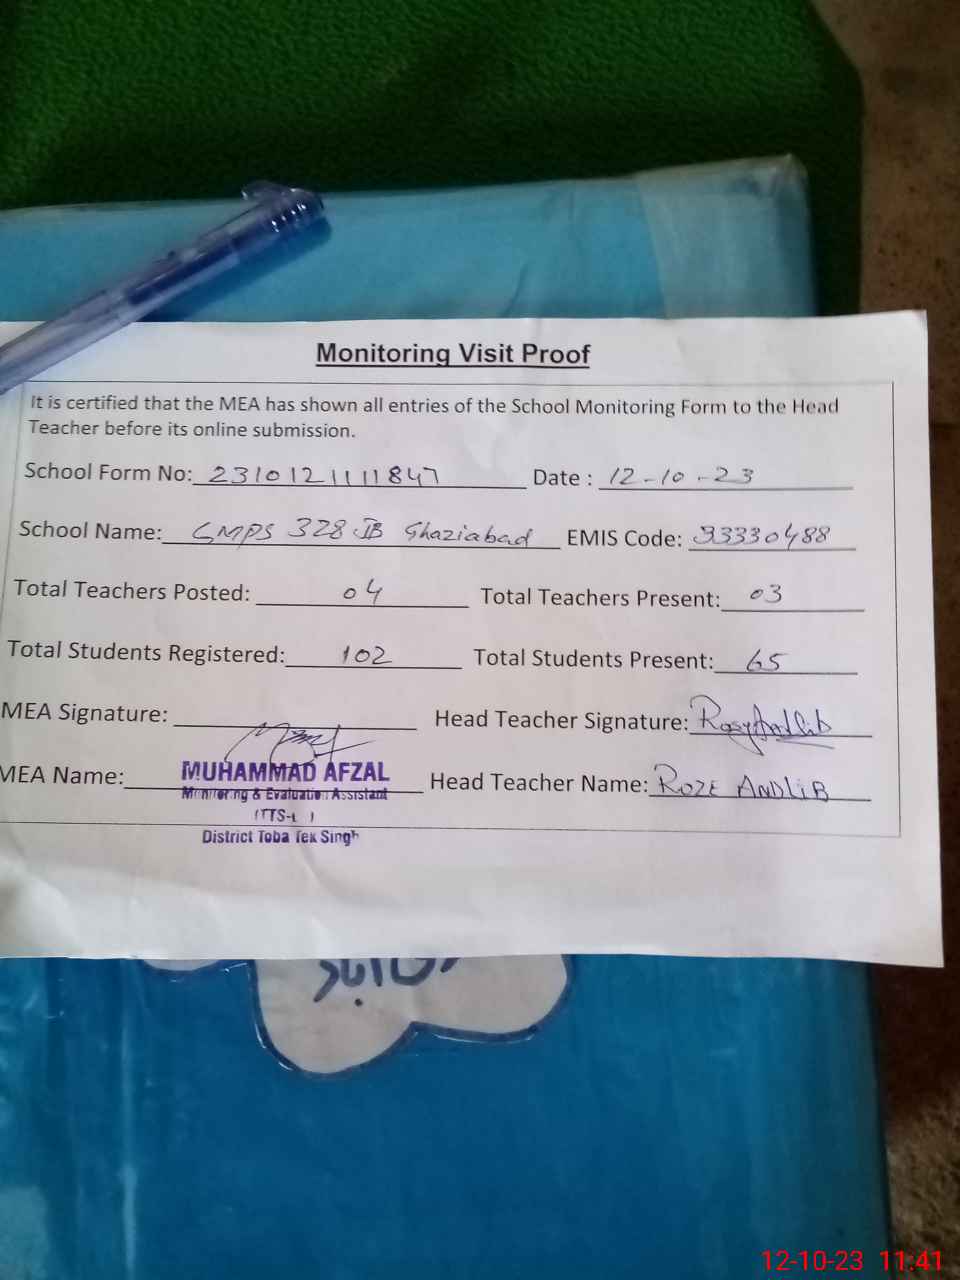 Monitoring Visit Proof
It is certified that the MEA has shown all entries of the School Monitoring Form to the Head
Teacher before its online submission.
School Form No: 2310121111847 Date : 12-10-23
School Name: GMPS 328 JB Ghaziabad EMIS Code: 33330488
Total Teachers Posted: 04 Total Teachers Present: 03
Total Students Registered: 102 Total Students Present: 65
MEA Signature: Head Teacher Signature: Rosy Andlib
MEA Name: MUHAMMAD AFZAL Head Teacher Name: ROZE ANDLIB
Monitoring & Evaluation Assistant
District Toba Tek Singh
آباد
12-10-23 11:41